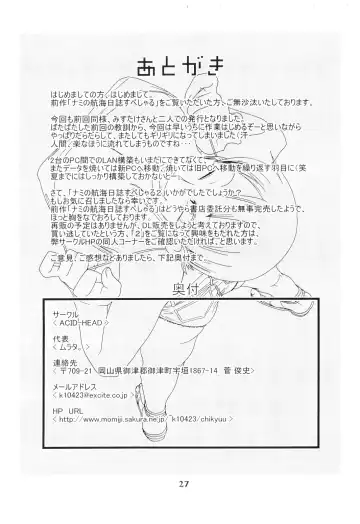 あとがき
はじめましての方、はじめまして。
前作「ナミの航海日誌すぺしゃる」をご覧いただいた方、ご無沙汰いたしております。
今回も前回同様、みすたけさんと二人での発行となりました。
ばたばたした前回の教訓から、今回は早いうちに作業はじめるぞーと思いながら
やっぱりだらだらして、またもやギリギリになってしまいました(汗…
人間、楽なほうに流れてしまうものですね…
2台のPC間でのLAN構築もいまだにできてなくて、
またデータを焼いては新PCへ移動、焼いては旧PCへ移動を繰り返す羽目に(笑
夏までにはしっかり構築しておかないと…
さて、「ナミの航海日誌すぺしゃる2」いかがでしたでしょうか?
もしお気に召しましたなら幸いです。
前作「ナミの航海日誌すぺしゃる」はどうやら書店委託分も無事完売したようで、
ほっと胸をなでおろしております。
再販の予定はありませんが、DL販売をしておりますので、
買い逃していたという方、「2」をご覧になって興味をもたれた方は、
弊サークルHPの同人コーナーをご確認いただければ、と思います。
ご意見、ご感想などありましたら、下記奥付まで。
奥付
サークル
< ACID-HEAD>
代表
< ムラタ。>
連絡先
< 〒709-21 岡山県御津郡御津町宇垣1867-14 菅 俊史>
メールアドレス
< k10423@excite.co.jp>
HP URL
< http://www.momiji.sakura.ne.jp/chikyuu>
27